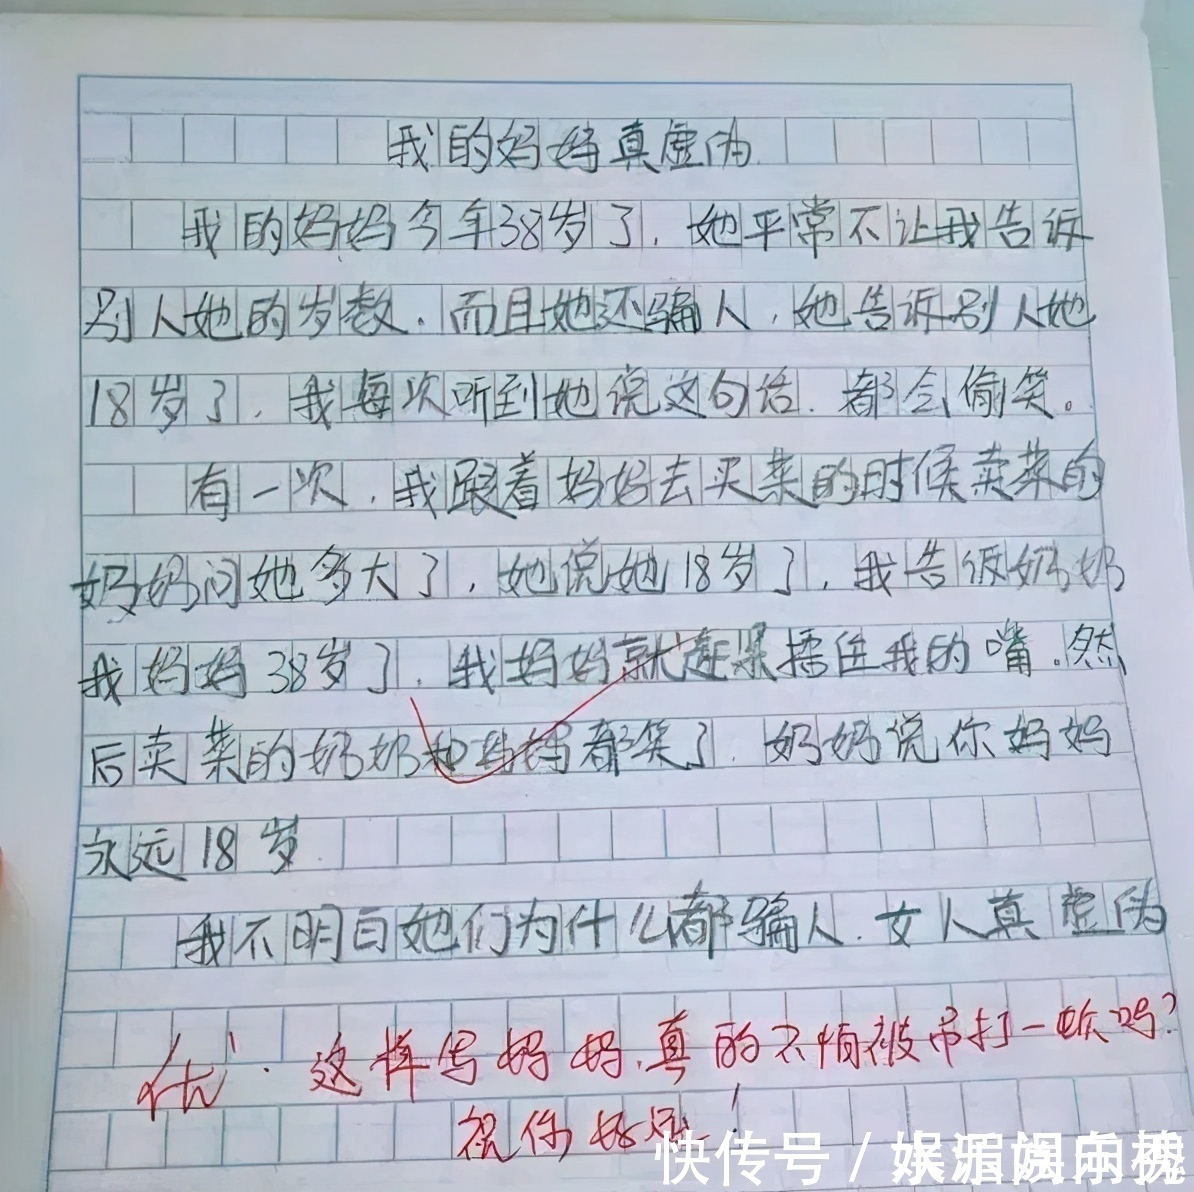 我的妈妈真虚伪
我的妈妈今年38岁了，她平常不让我告诉
别人她的岁数．而且她还骗人，她告诉别人她
18岁了，我每次听到她说这句话．都会偷笑。
有一次，我跟着妈妈去买菜的时候卖菜的
奶奶问她多大了，她说她18岁了，我告诉奶奶
我妈妈38岁了，我妈妈就赶紧捂住我的嘴。然
后卖菜的奶奶和妈妈都笑了．奶奶说你妈妈
永远18岁．
我不明白她们为什么都骗人．女人真虚伪
优．这样写妈妈，真的不怕被吊打一顿吗？
祝你好运！
快传号／娱